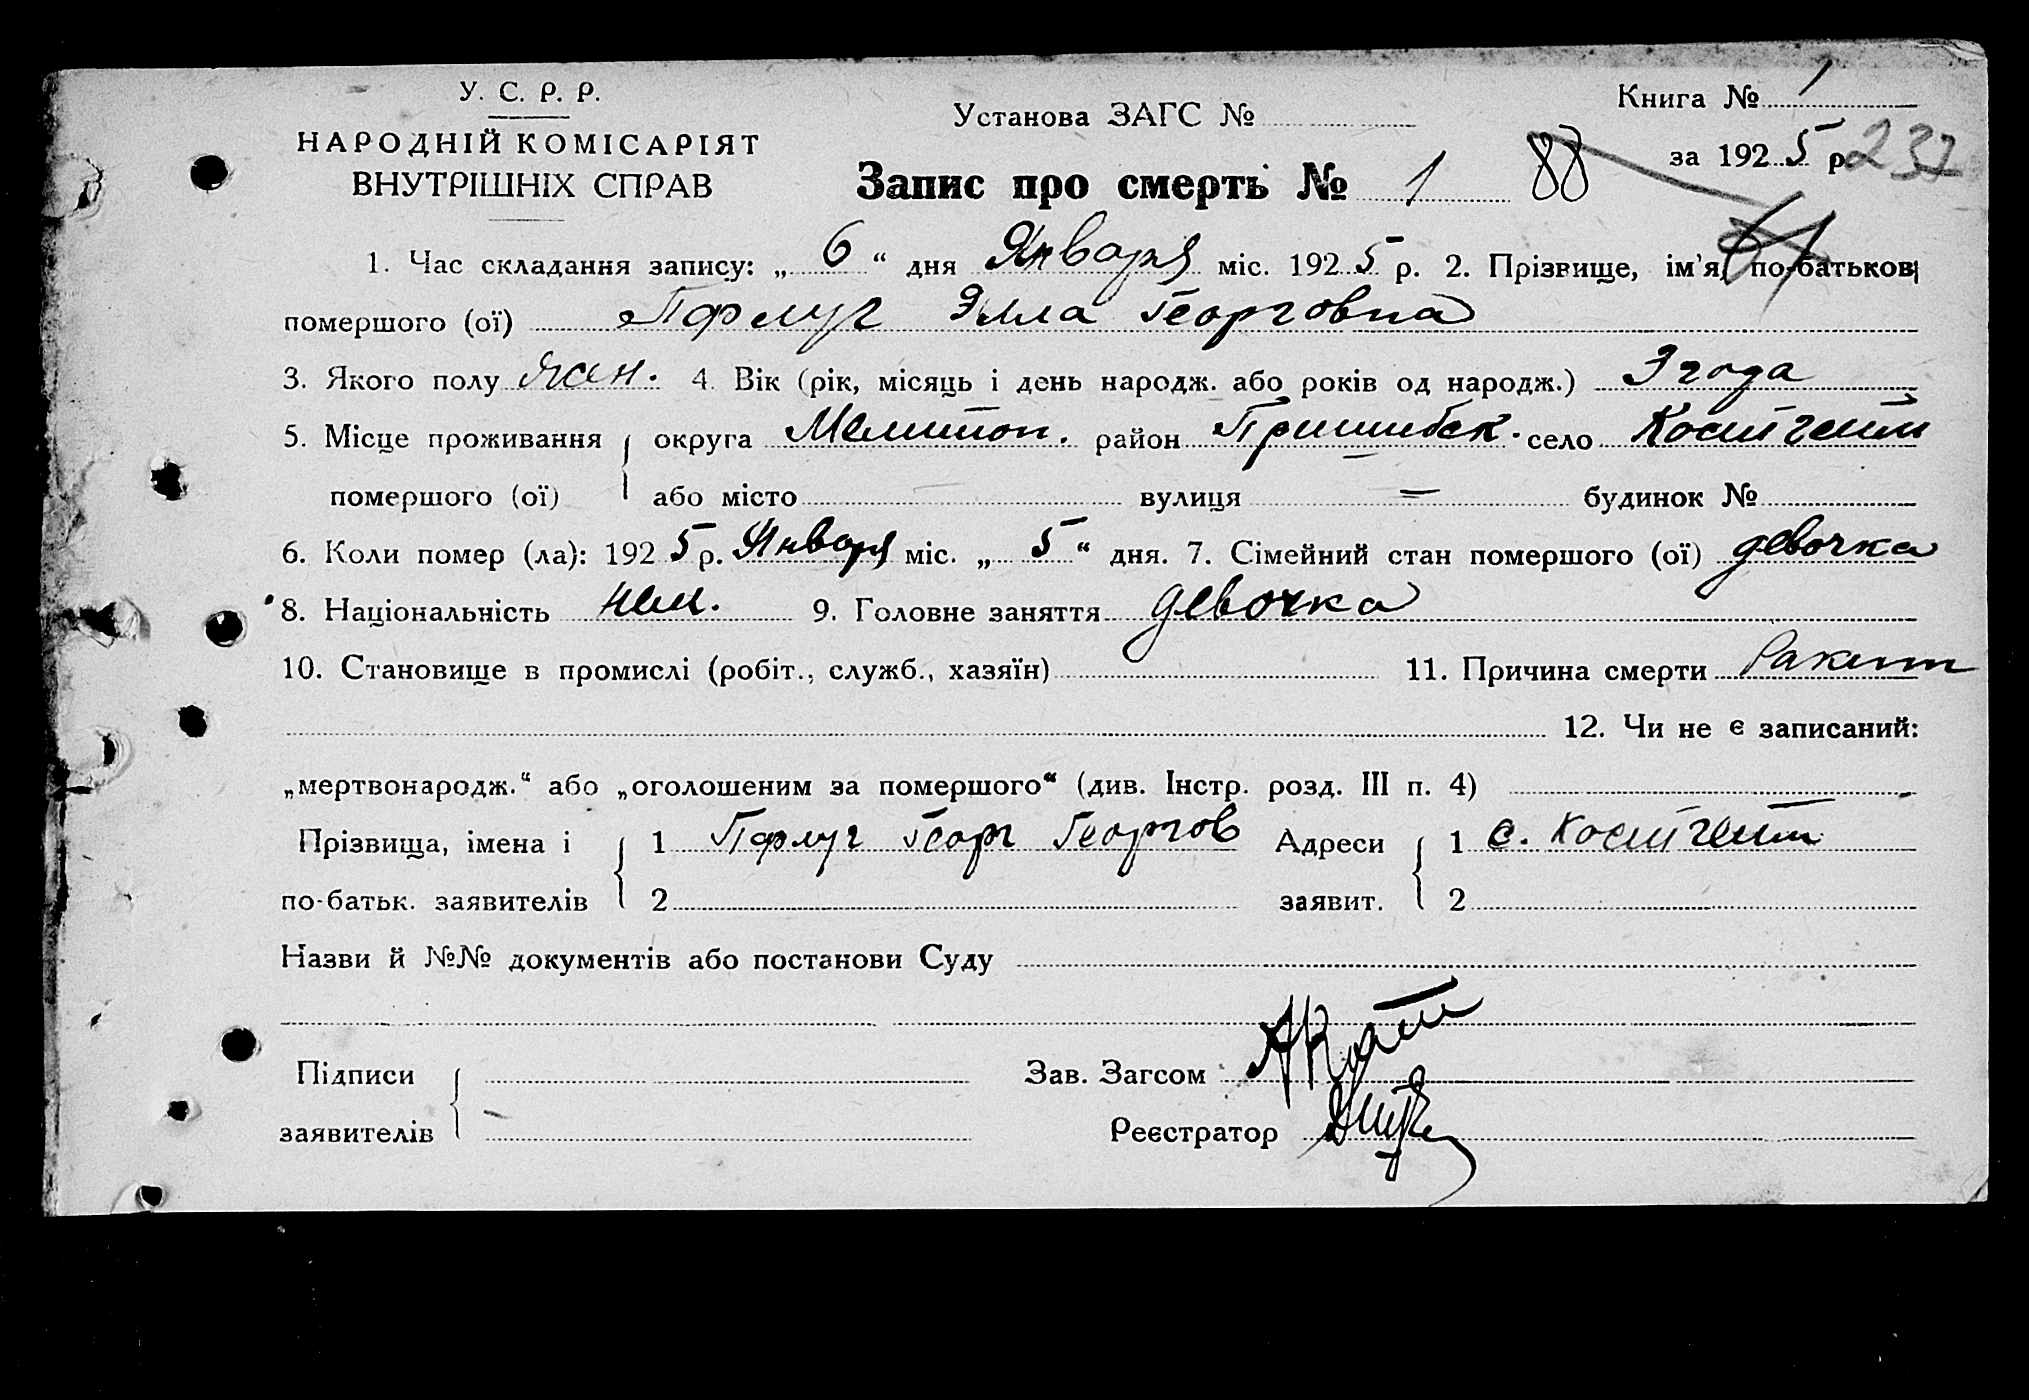 У. С. Р. Р.
НАРОДНІЙ КОМІСАРІЯТ
ВНУТРІШНІХ СПРАВ
Установа ЗАГС №
Книга № 1
за 192 5 р. 232
Запис про смерть № 1 88
1. Час складання запису: „ 6 “ дня Января міс. 192 5 р. 2. Прізвище, ім'я, по-батькові
помершого (ої) Пфлуг Элла Георговна
3. Якого полу жен. 4. Вік (рік, місяць і день народж. або років од народж.) 3 года
5. Місце проживання округа Мелитоп. район Пришибск. село Костгейм
помершого (ої) або місто вулиця = будинок №
6. Коли помер (ла): 192 5 р. Января міс. „ 5 “ дня. 7. Сімейний стан помершого (ої) девочка
8. Національність нем. 9. Головне заняття девочка
10. Становище в промислі (робіт., служб., хазяїн) 11. Причина смерти Рахит
12. Чи не є записаний:
„мертвонародж.“ або „оголошеним за помершого“ (див. Інстр. розд. III п. 4)
Прізвища, імена і 1 Пфлуг Георг Георгов Адреси 1 с. Костгейм
по-батьк. заявителів 2 заявит. 2
Назви й №№ документів або постанови Суду
Підписи Зав. Загсом
заявителів Реєстратор